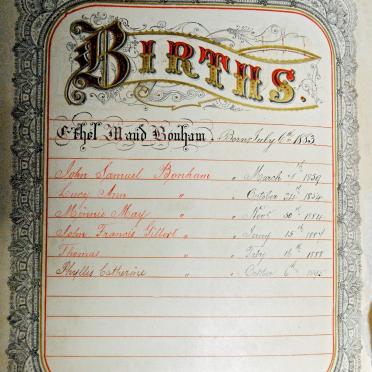 BIRTHS.
Ethel Maud Bonham, Born July 6th 1883
John Samuel Bonham " March 4th 1859
Lucy Ann " " October 24th 1854
Minnie May " " Novr 30th 1884
John Francis " " 15th
Thomas " " Feby 16th 1888
Phyllis Catherine " " October 6th